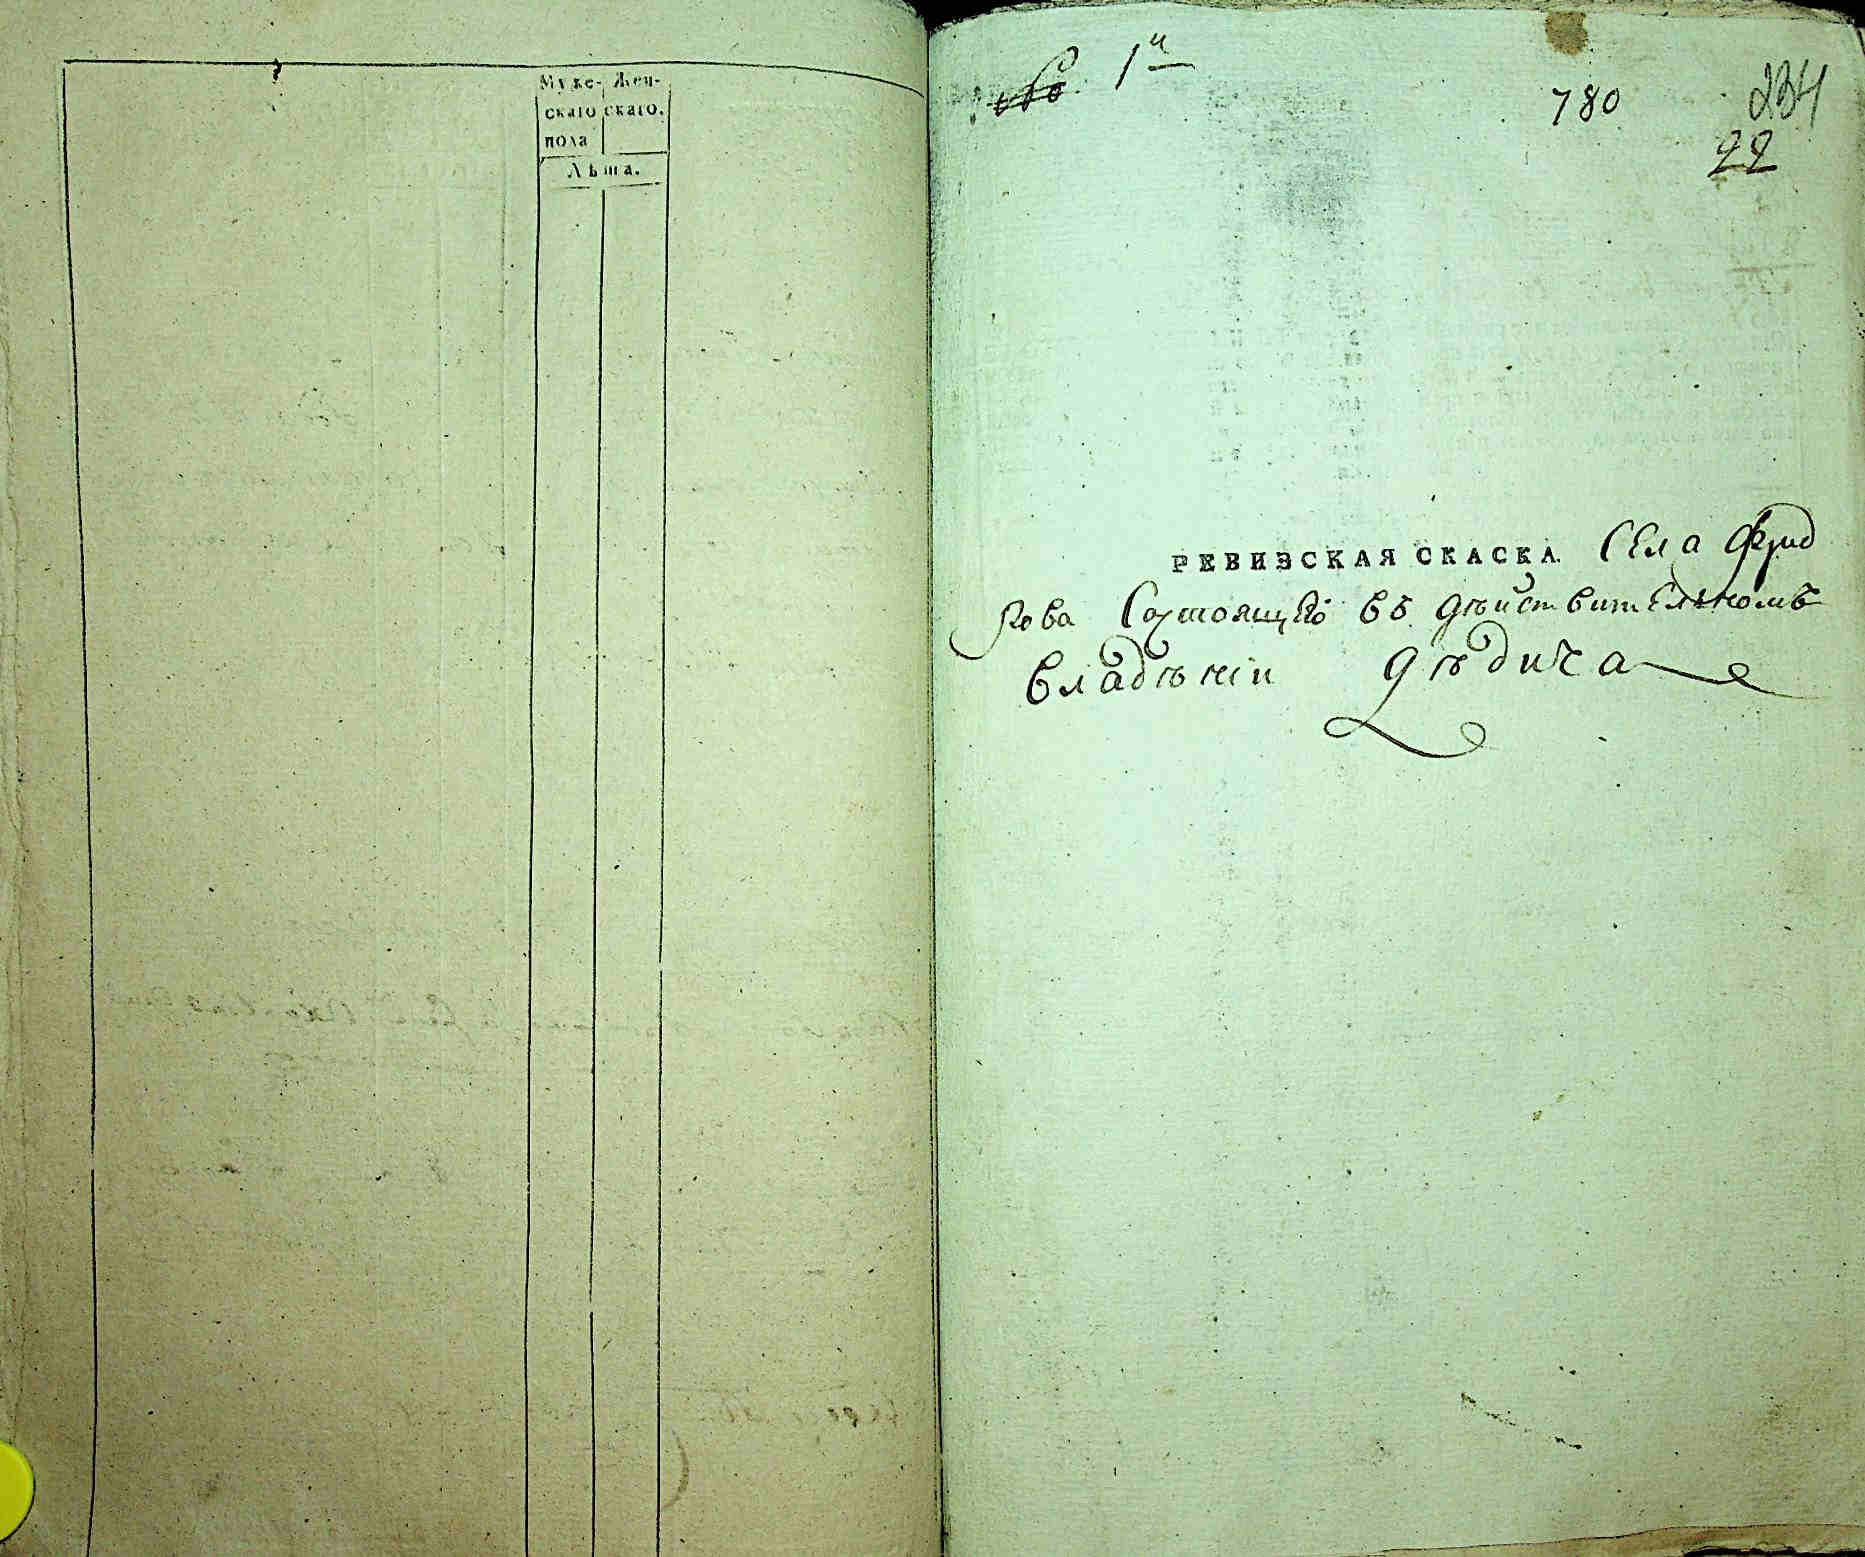 Муже- Жен-
скаго скаго.
пола
Лѣта.
1й
780
234
22
РЕВИЗСКАЯ СКАСКА. Села Фрид
рова Состоящего въ дѣйствителномъ
владѣніи дѣдича